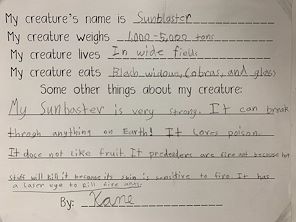 My creature's name is Sunblaster
My creature weighs 1,000-5,000 tons
My creature lives In wide fields
My creature eats Black widows, Cobras, and glass
Some other things about my creature:
My Sunbaster is very strong. It can break
throgh anything on Earth! It Loves poison.
It doce not like fruit. It prededers are fire not because hot
stuff will kill it because its skin is sensitive to fire. It has
a laser eye to kill fire
By: Kane